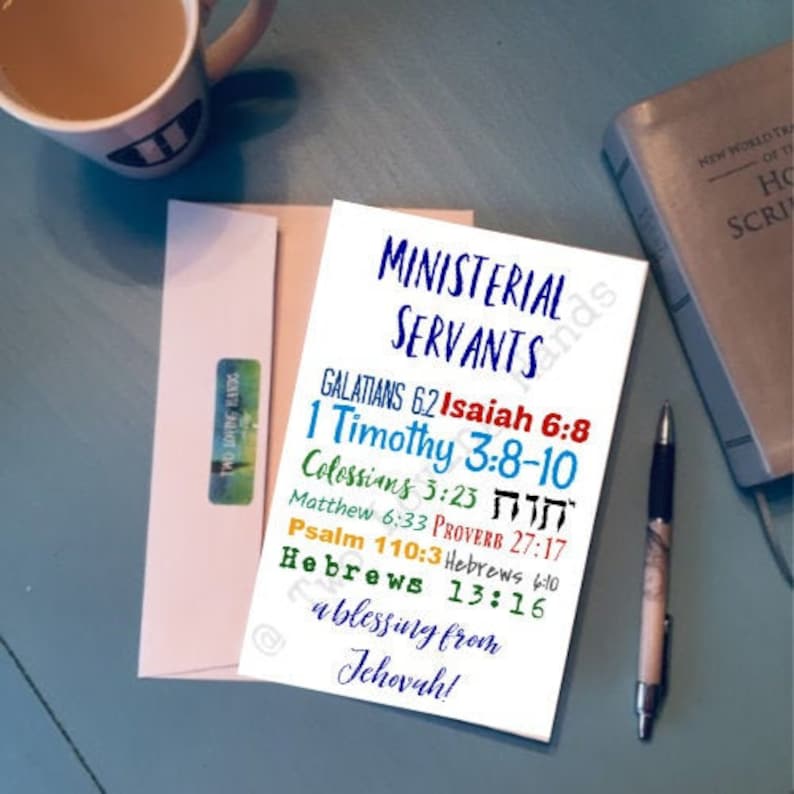 MINISTERIAL
SERVANTS
GALATIANS 6:2 Isaiah 6:8
1 Timothy 3:8-10
Colossians 3:23 יהוה
Matthew 6:33 PROVERB 27:17
Psalm 110:3 Hebrews 6:10
Hebrews 13:16
a blessing from
Jehovah!
@ Two Loving Hands
TWO LOVING HANDS
H
NEW WORLD TRA
OF THE
HO
SCRIP